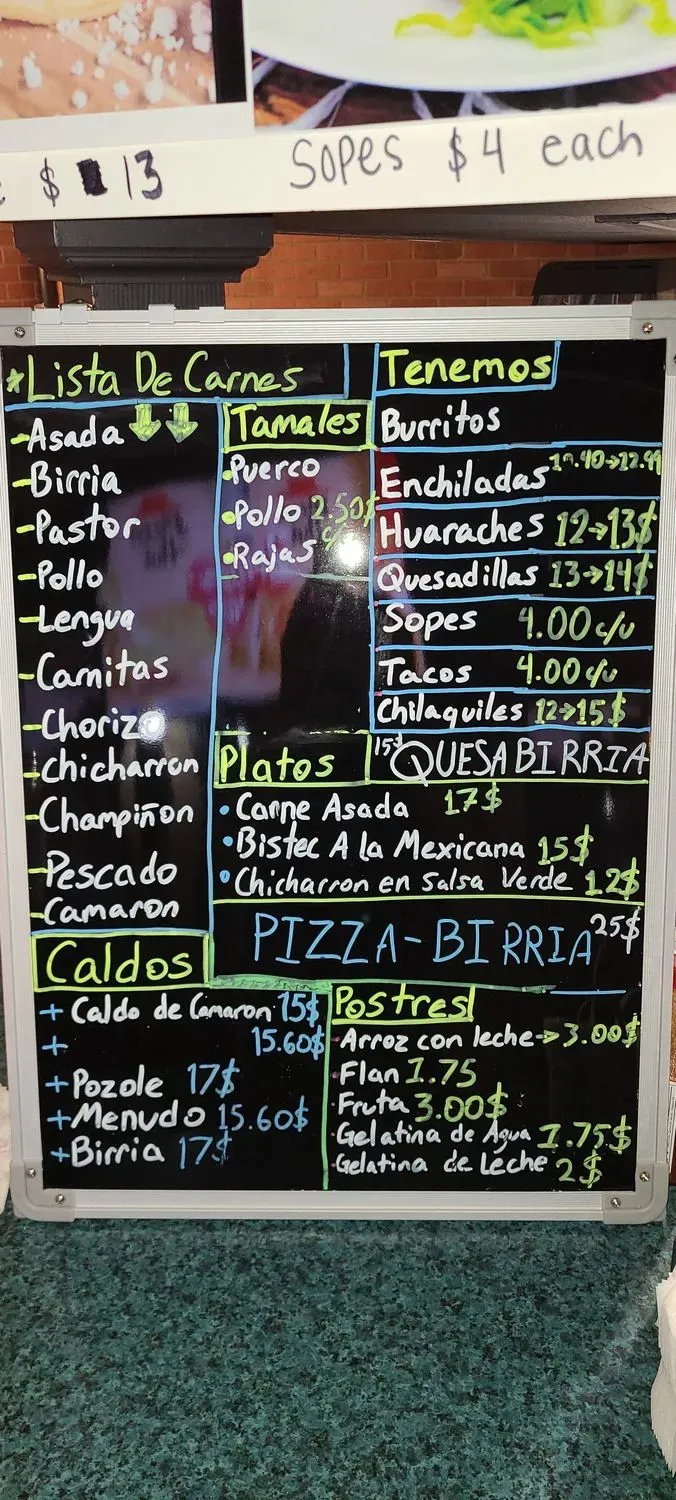 $ 13
Sopes $4 each
*Lista De Carnes
-Asada
-Birria
-Pastor
-Pollo
-Lengua
-Carnitas
-Chorizo
-Chicharron
-Champiñon
-Pescado
-Camaron
Tamales
•Puerco
•Pollo 2.50$
•Rajas
Tenemos
Burritos
Enchiladas →12.99
Huaraches 12→13$
Quesadillas 13→14$
Sopes 4.00 c/u
Tacos 4.00 c/u
Chilaquiles 12→15$
15$ QUESABIRRIA
Platos
•Carne Asada 17$
•Bistec A la Mexicana 15$
•Chicharron en Salsa Verde 12$
PIZZA-BIRRIA 25$
Caldos
+ Caldo de Camaron 15$
+ 15.60$
+Pozole 17$
+Menudo 15.60$
+Birria 17$
Postres
Arroz con leche→3.00$
Flan 1.75
Fruta 3.00$
Gelatina de Agua 1.75$
Gelatina de Leche 2$